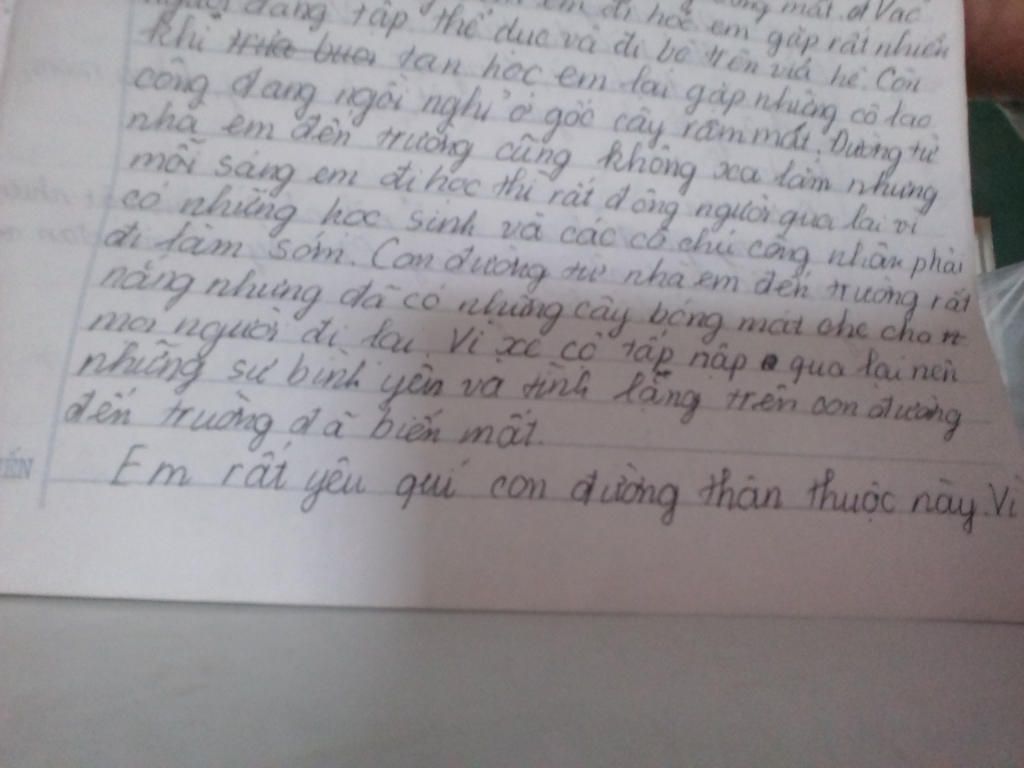 mát. ở các
em đi học em gặp rất nhiều
người đang tập thể dục và đi bộ trên vỉa hè. Còn
khi trưa buổi tan học em lại gặp những cô lao
công đang ngồi nghỉ ở gốc cây râm mát. Đường từ
nhà em đến trường cũng không xa lắm nhưng
mỗi sáng em đi học thì rất đông người qua lại vì
có những học sinh và các cô chú công nhân phải
đi làm sớm. Con đường từ nhà em đến trường rất
nắng nhưng đã có những cây bóng mát che cho
mọi người đi lại. Vì xe cộ tấp nập qua lại nên
những sự bình yên và tĩnh lặng trên con đường
đến trường đã biến mất.
Em rất yêu quí con đường thân thuộc này. Vì
ẾN